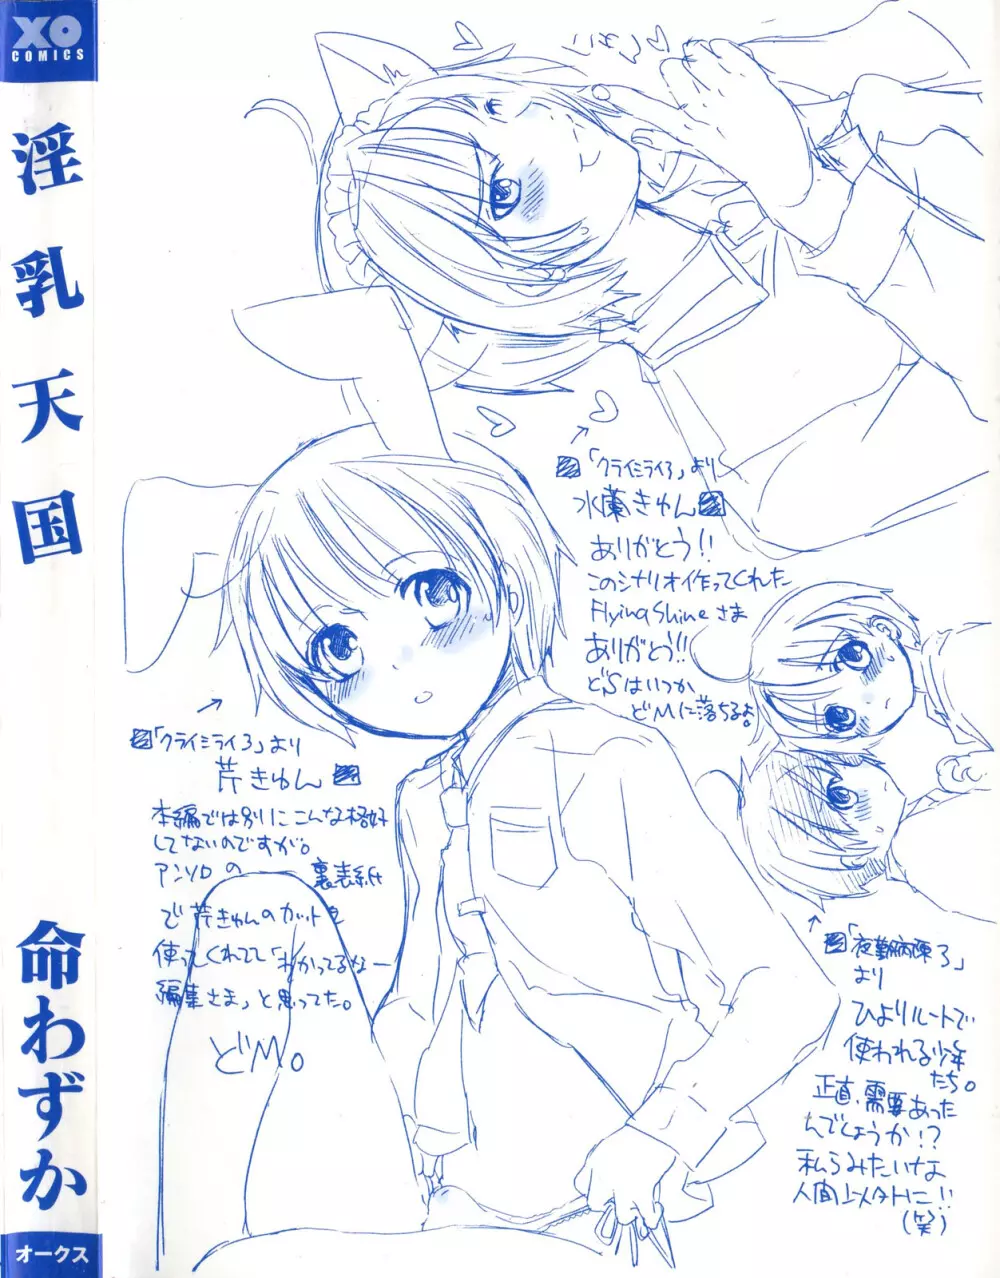 XO
COMICS
淫乳天国
命わずか
オークス
「クライミライ3」より
水蘭きゅん
ありがとう!!
このシナリオ作ってくれた
Flying Shineさま
ありがとう!!
どSはいつか
どMに落ちるよ。
「クライミライ3」より
芹きゅん
本編では別にこんな格好
してないのですが。
アンソロの 裏表紙
で芹きゅんのカットを
使ってくれてて「わかってるなー
編集さま」と思ってた。
どM。
「夜勤病棟3」
より
ひよりルートで
使われる少年
たち。
正直、需要あった
んでしょうか!?
私らみたいな
人間以外に!!
(笑)